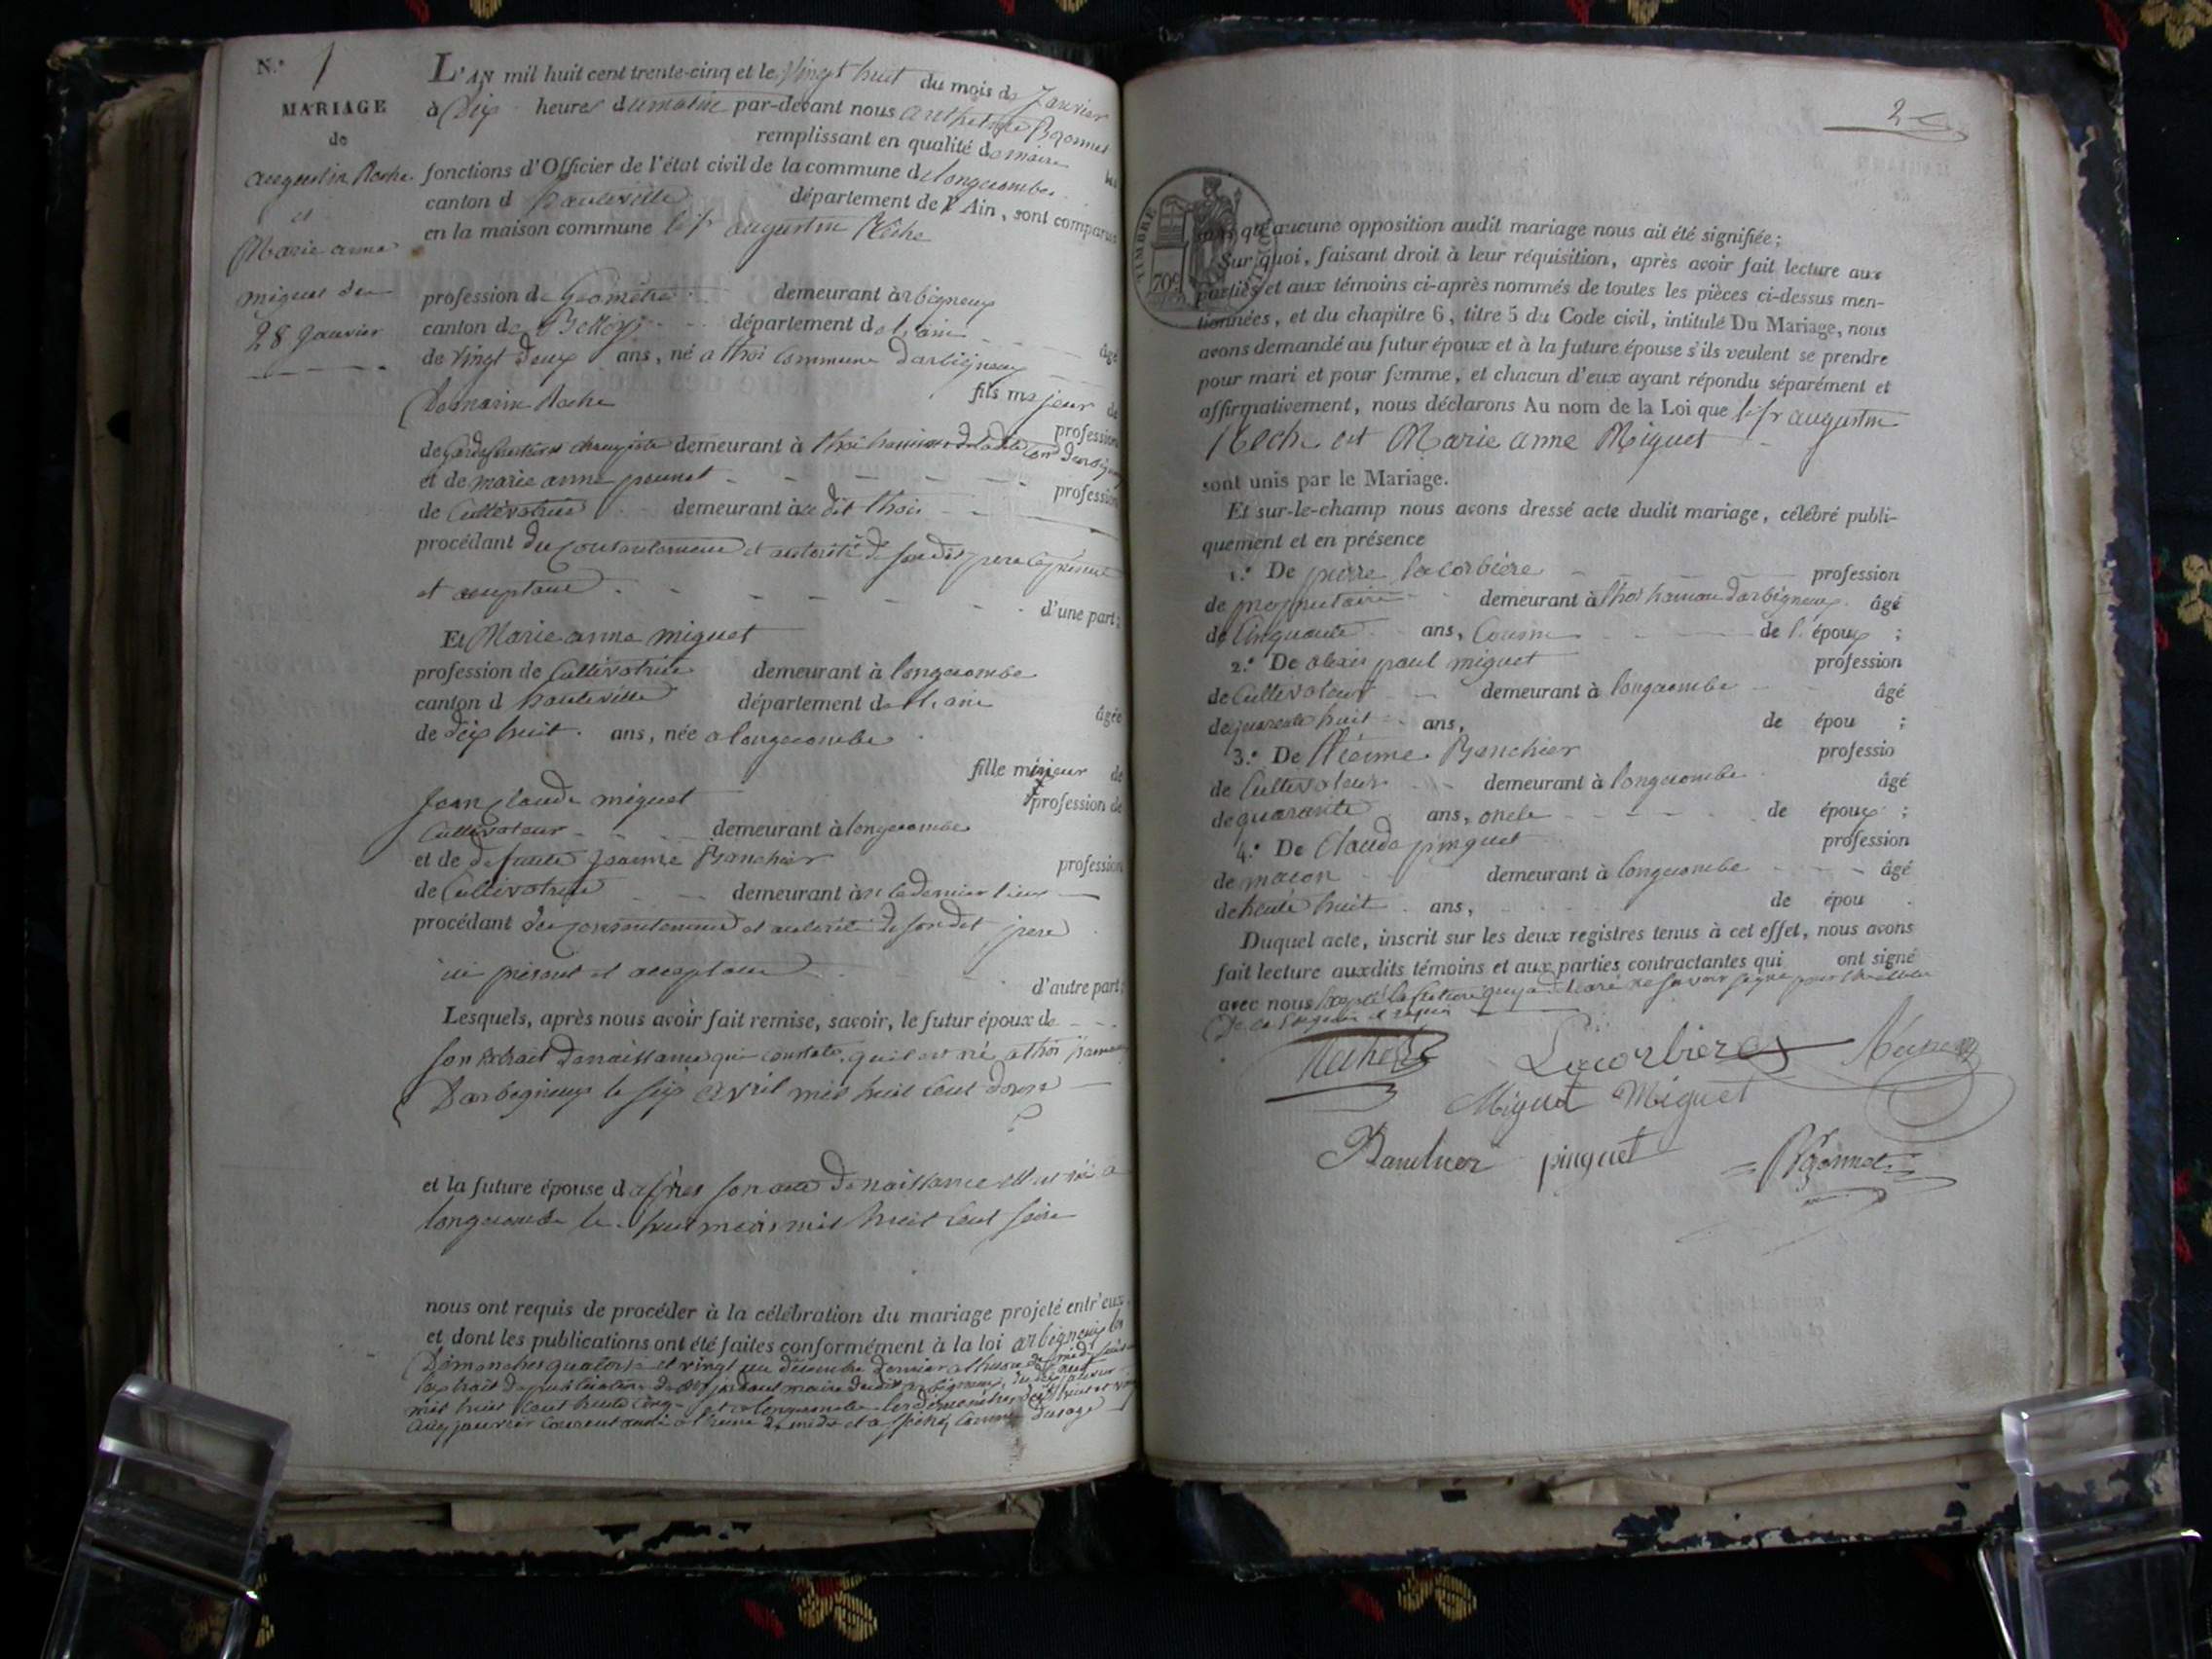 N.° 1
MARIAGE
de
augustin Roche
et
Marie anne
miguet du
28 Janvier
L'AN mil huit cent trente-cinq et le vingt huit du mois de Janvier
à Dix heures du matin par-devant nous anthelme Bgonnet
remplissant en qualité de maire les
fonctions d'Officier de l'état civil de la commune de longecombe
canton d hauteville département de l'Ain, sont comparus
en la maison commune le sr augustin Roche
profession de Géomètre demeurant à arbigneux
canton de Belley département de l'ain âgé
de vingt deux ans, né a thoi commune d'arbigneux
fils majeur de
Domarin Roche profession
de garde forestier et demeurant à thoi hameau de la dite con d'arbigneux
et de marie anne profession
de Cultivatrice demeurant à u dit thoi
procédant du consentement et autorité de son dit pere ce présent
et acceptant d'une part;
Et Marie anne miguet
profession de Cultivatrice demeurant à longecombe
canton d hauteville département de l'ain âgée
de dix huit ans, née a longecombe
fille mineur de
Jean Claude miguet profession de
Cultivateur demeurant à longecombe
et de defunte Jeanne Banchier profession
de Cultivatrice demeurant à ce dernier lieu
procédant du consentement et autorité de son dit pere
ici présent et acceptant d'autre part;
Lesquels, après nous avoir fait remise, savoir, le futur époux de
son extrait de naissance qui constate qu'il est né a thoi hameau
D'arbigneux le six avril mil huit cent douze
et la future épouse d'après son acte de naissance elle est née a
longecombe le huit mars mil huit cent seize
nous ont requis de procéder à la célébration du mariage projeté entr'eux
et dont les publications ont été faites conformément à la loi a arbigneux les
Dimanches quatorze et vingt un décembre dernier a l'heure de midi
l'extrait de publication maire dudit arbigneux
mil huit cent trente cinq et a longecombe les dimanches dix huit et vingt
cinq janvier courant aussi a l'heure de midi et affichés comme d'usage
2e
TIMBRE
709
sans qu'aucune opposition audit mariage nous ait été signifiée;
Sur quoi, faisant droit à leur réquisition, après avoir fait lecture aux
parties et aux témoins ci-après nommés de toutes les pièces ci-dessus men-
tionnées, et du chapitre 6, titre 5 du Code civil, intitulé Du Mariage, nous
avons demandé au futur époux et à la future épouse s'ils veulent se prendre
pour mari et pour femme, et chacun d'eux ayant répondu séparément et
affirmativement, nous déclarons Au nom de la Loi que le sr augustin
Roche et Marie anne Miguet
sont unis par le Mariage.
Et sur-le-champ nous avons dressé acte dudit mariage, célébré publi-
quement et en présence
1.° De pierre lacorbière profession
de propriétaire demeurant à thoi hameau d'arbigneux âgé
de Cinquante ans, Cousin de l'époux ;
2.° De alexis paul miguet profession
de Cultivateur demeurant à longecombe âgé
de quarante huit ans, de épou ;
3.° De Etienne Banchier professio
de Cultivateur demeurant à longecombe âgé
de quarante ans, oncle de époux ;
4.° De Claude pinguet profession
de macon demeurant à longecombe âgé
de trente huit ans, de épou
Duquel acte, inscrit sur les deux registres tenus à cet effet, nous avons
fait lecture auxdits témoins et aux parties contractantes qui ont signé
avec nous excepté la future qui a déclaré ne savoir signer
de ce enquis et requis
Roche Lacorbiere
Miguet Miguet
Banchier pinguet Bgonnet